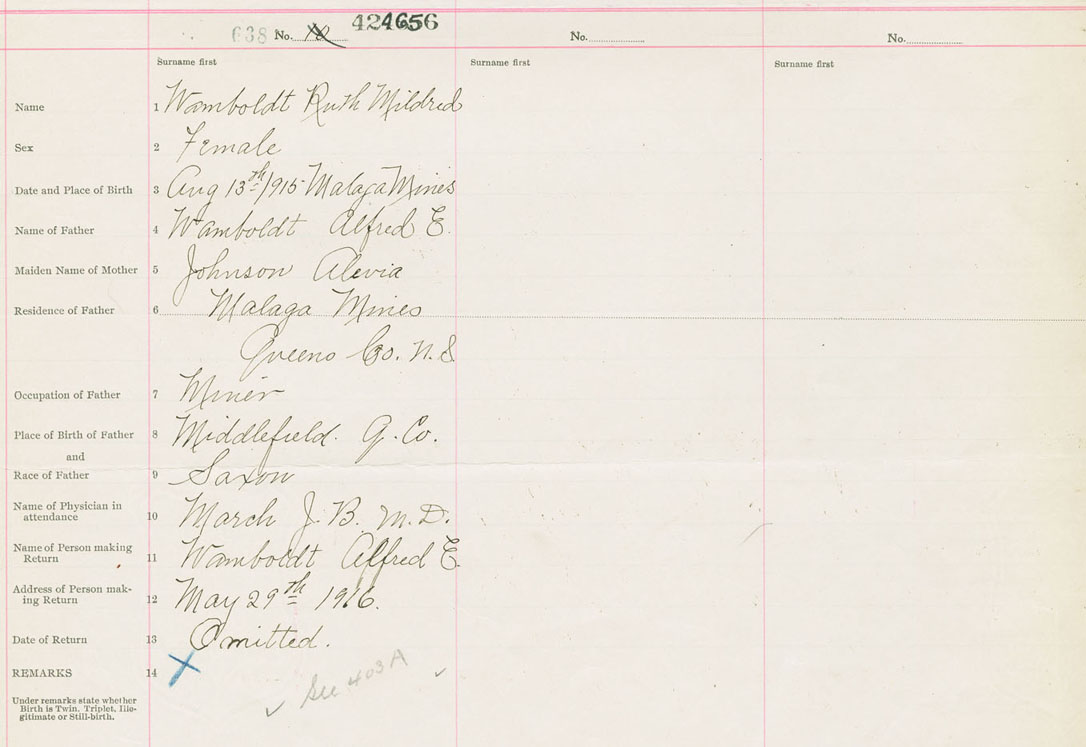 638 No. 10 424656 No. No.
Surname first Surname first Surname first
Name 1 Wamboldt Ruth Mildred
Sex 2 Female
Date and Place of Birth 3 Aug 13th 1915 Malaga Mines
Name of Father 4 Wamboldt Alfred E.
Maiden Name of Mother 5 Johnson Alevia
Residence of Father 6 Malaga Mines
Queens Co. N.S
Occupation of Father 7 Miner
Place of Birth of Father 8 Middlefield. Q. Co.
and
Race of Father 9 Saxon
Name of Physician in
attendance 10 March J. B. M.D.
Name of Person making
Return 11 Wamboldt Alfred E.
Address of Person mak-
ing Return 12 May 29th 1916.
Date of Return 13 Omitted.
REMARKS 14 X
See 403A
Under remarks state whether
Birth is Twin, Triplet, Ille-
gitimate or Still-birth.